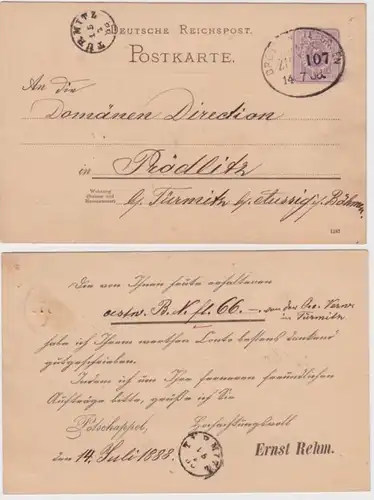 DEUTSCHE REICHSPOST.
POSTKARTE.
TÜRMITZ
107
14 7 88.
An die
Domänen Direction
in Prödlitz
Wohnung
b/ Türmitz b/ Aussig i/ Böhmen
Die von Ihnen heute erhaltenen
oestr. B. N. fl. 66. — von der Oec. Verw.
in Türmitz
habe ich Ihrem werthen Conto bestens dankend
gutgeschrieben.
Indem ich um Ihre ferneren freundlichen
Aufträge bitte, grüße ich Sie
Hochachtungsvoll
Potschappel,
den 14. Juli 1888.
TÜRMITZ
Ernst Rehm.